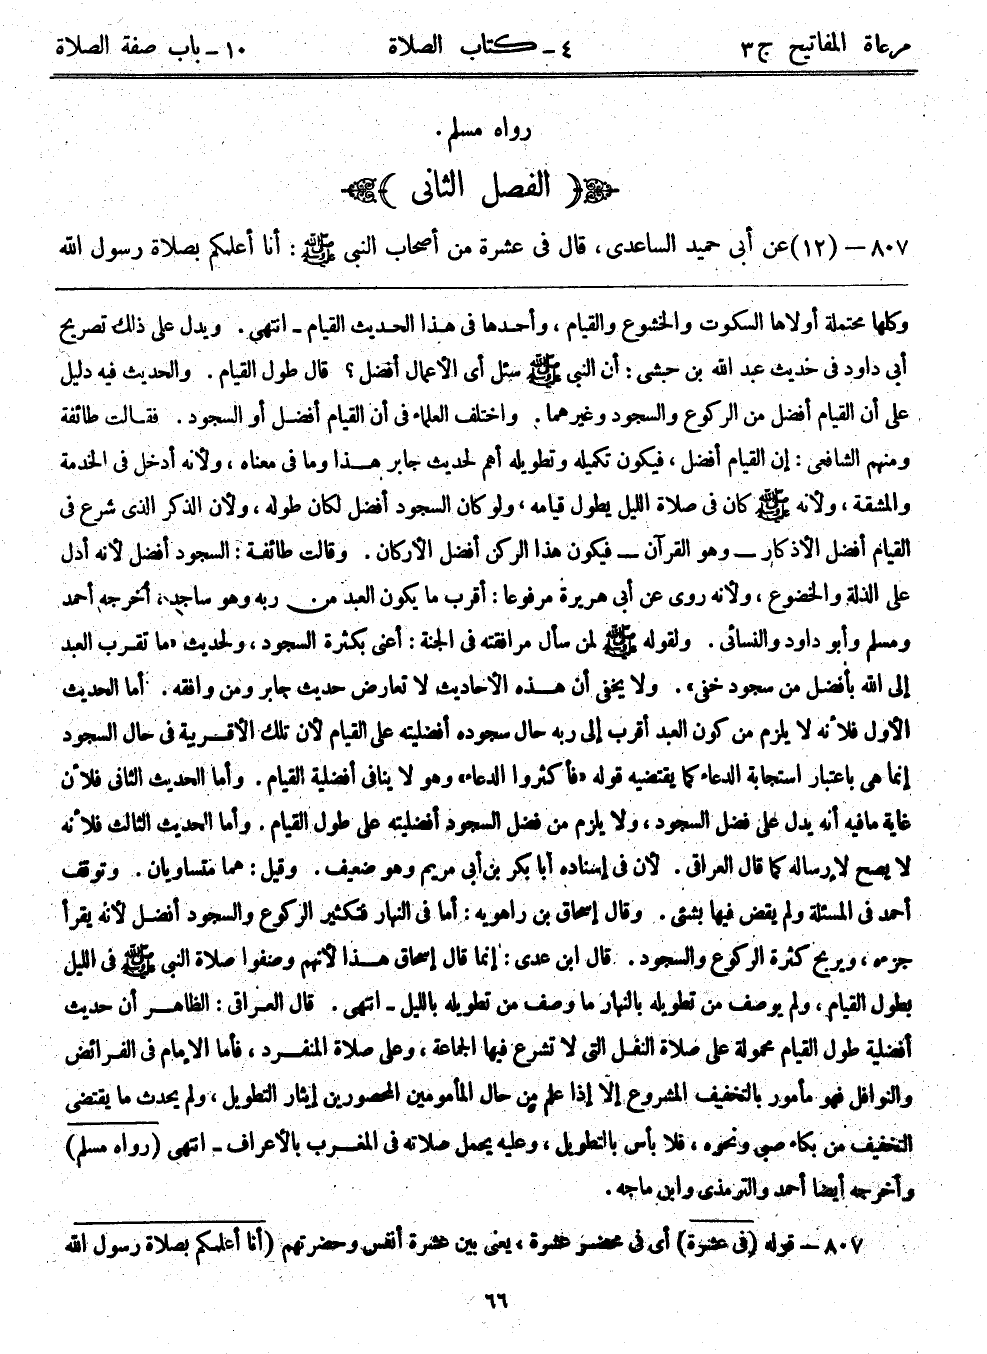 مرعاة المفاتيح ج٣ ٤ ـ كتاب الصلاة ١٠ ـ باب صفة الصلاة
رواه مسلم .
﴿ الفصل الثانى ﴾
٨٠٧ – (١٢) عن أبى حميد الساعدى ، قال فى عشرة من أصحاب النبى ﷺ : أنا أعلمكم بصلاة رسول الله
وكلها محتملة أولاها السكوت والخشوع والقيام ، وأحدها فى هذا الحديث القيام ـ انتهى . ويدل على ذلك تصريح
أبى داود فى حديث عبد الله بن حبشى : أن النبى ﷺ سئل أى الأعمال أفضل ؟ قال طول القيام . والحديث فيه دليل
على أن القيام أفضل من الركوع والسجود وغيرهما . واختلف العلماء فى أن القيام أفضل أو السجود . فقالت طائفة
ومنهم الشافعى : إن القيام أفضل ، فيكون تكميله وتطويله أهم لحديث جابر هذا وما فى معناه ، ولأنه أدخل فى الخدمة
والمشقة ، ولأنه ﷺ كان فى صلاة الليل يطول قيامه ، ولو كان السجود أفضل لكان طوله ، ولأن الذكر الذى شرع فى
القيام أفضل الأذكار ــ وهو القرآن ــ فيكون هذا الركن أفضل الأركان . وقالت طائفة : السجود أفضل لأنه أدل
على الذلة والخضوع ، ولأنه روى عن أبى هريرة مرفوعا : أقرب ما يكون العبد من ربه وهو ساجد ، أخرجه أحمد
ومسلم وأبو داود والنسائى . ولقوله ﷺ لمن سأل مرافقته فى الجنة : أعنى بكثرة السجود ، ولحديث «ما تقرب العبد
إلى الله بأفضل من سجود خفى» . ولا يخفى أن هذه الأحاديث لا تعارض حديث جابر ومن وافقه . أما الحديث
الأول فلأنه لا يلزم من كون العبد أقرب إلى ربه حال سجوده أفضليته على القيام لأن تلك الأقربية فى حال السجود
إنما هى باعتبار استجابة الدعاء كما يقتضيه قوله «فأكثروا الدعاء» وهو لا ينافى أفضلية القيام . وأما الحديث الثانى فلأن
غاية مافيه أنه يدل على فضل السجود ، ولا يلزم من فضل السجود أفضليته على طول القيام . وأما الحديث الثالث فلأنه
لا يصح لإرساله كما قال العراقى . لأن فى إسناده أبا بكر بن أبى مريم وهو ضعيف . وقيل : هما متساويان . وتوقف
أحمد فى المسئلة ولم يقض فيها بشئى . وقال إسحاق بن راهويه : أما فى النهار فتكثير الركوع والسجود أفضل لأنه يقرأ
جزءه ، ويربح كثرة الركوع والسجود . قال ابن عدى : إنما قال إسحاق هذا لأنهم وصفوا صلاة النبى ﷺ فى الليل
بطول القيام ، ولم يوصف من تطويله بالنهار ما وصف من تطويله بالليل ـ انتهى . قال العراقى : الظاهر أن حديث
أفضلية طول القيام محمولة على صلاة النفل التى لا تشرع فيها الجماعة ، وعلى صلاة المنفرد ، فأما الإمام فى الفرائض
والنوافل فهو مأمور بالتخفيف المشروع إلا إذا علم من حال المأمومين المحصورين إيثار التطويل ، ولم يحدث ما يقتضى
التخفيف من بكاء صبى ونحوه ، فلا بأس بالتطويل ، وعليه يحمل صلاته فى المغرب بالأعراف ـ انتهى (رواه مسلم)
وأخرجه أيضا أحمد والترمذى وابن ماجه .
٨٠٧ – قوله (فى عشرة) أى فى محضر عشرة ، يعنى بين عشرة أنفس وحضرتهم (أنا أعلمكم بصلاة رسول الله
٦٦